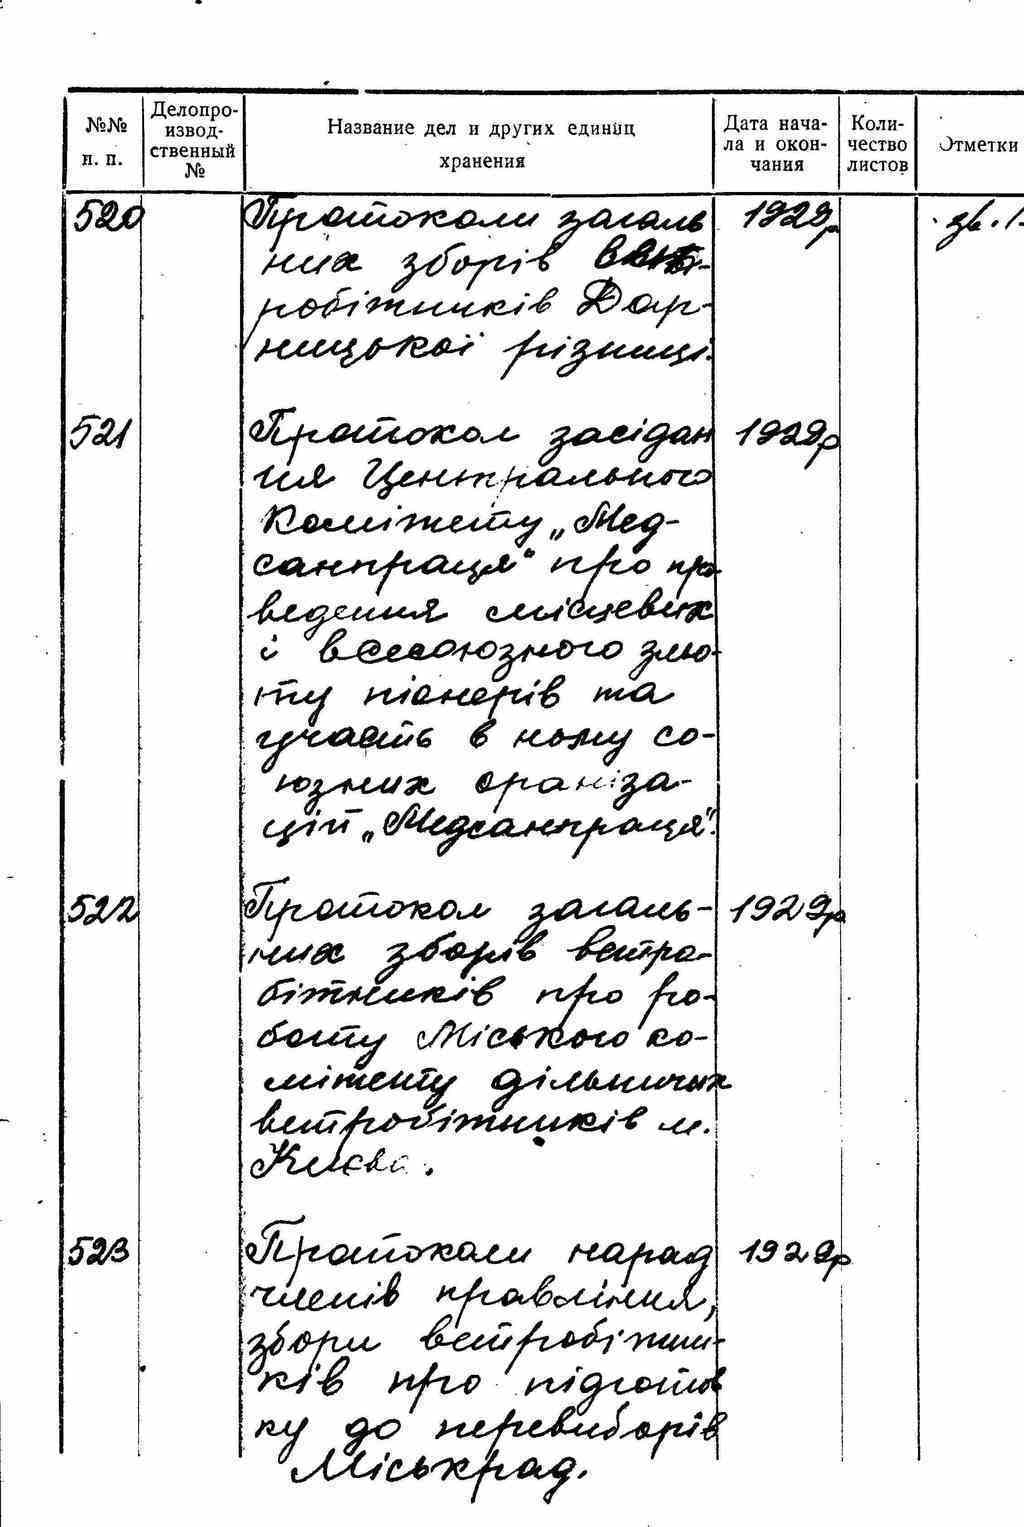 №№ п. п.
Делопро-
извод-
ственный
№
Название дел и других единиц
хранения
Дата нача-
ла и окон-
чания
Коли-
чество
листов
Отметки
520 Протоколи загаль 1929р
них зборів
робітників Дар-
ницької різниці.
521 Протокол засідан 1929р
ня Центрального
Комітету „Мед-
санпраця" про про
ведення місцевих
і всесоюзного зльо-
ту піонерів та
участь в ному со-
юзних організа-
цій „Медсанпраця".
522 Протокол загаль- 1929р
них зборів ветро-
бітників про ро-
боту Міського ко-
мітету дільничих
ветробітників м.
Києва.
523 Протоколи нарад 1929р
членів правління,
збори ветробітни-
ків про підготов
ку до перевиборів
Міськрад.